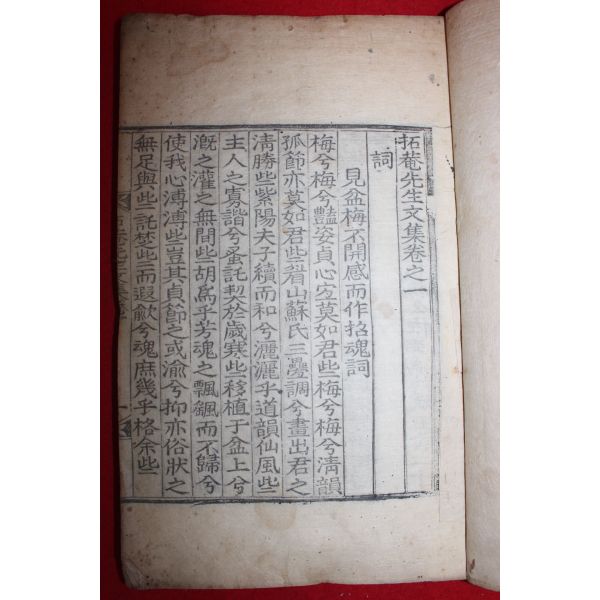 拓菴先生文集卷之一
詞
見盆梅不開感而作招魂詞
梅兮梅兮豔姿貞心寔莫如君些梅兮梅兮淸韻
孤節亦莫如君些眉山蘇氏三疊調兮畫出君之
淸勝些紫陽夫子續而和兮灑灑乎道韻仙風些
主人之寡諧兮蚤託契於歲寒些移植于盆上兮
漑之灌之無間些胡爲乎芳魂之飄颻而不歸兮
使我心溥溥些豈其貞節之或渝兮抑亦俗狀之
無足與些託椘些而遐歛兮魂庶幾乎格余些